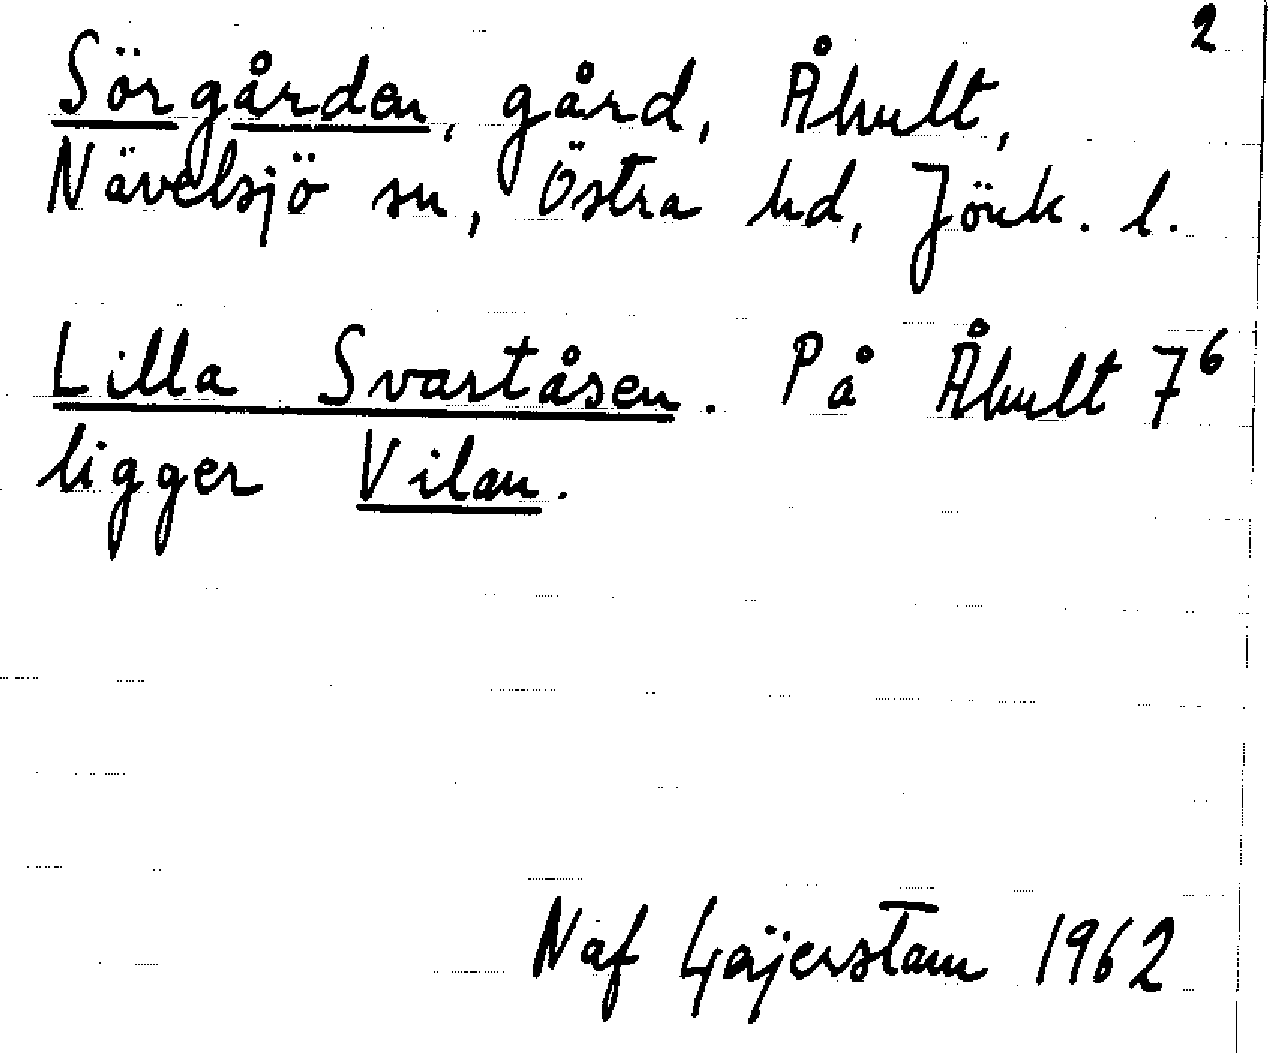 2
Sörgården, gård, Åhult,
Nävelsjö sn, Östra hd, Jönk. l.
Lilla Svartåsen. På Åhult 7⁶
ligger Vilan.
Naf Gajerstam 1962